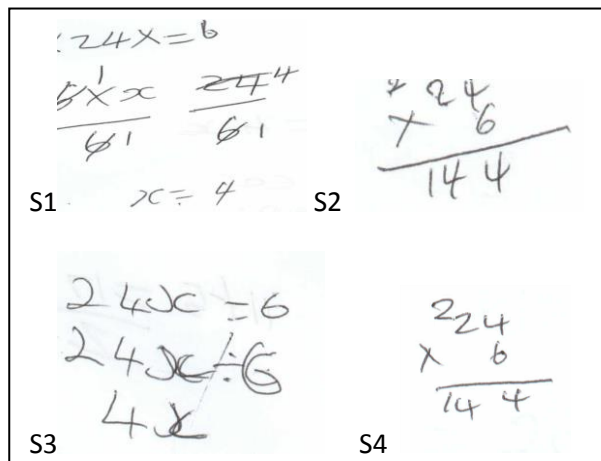 24x = 6
6 × x 24 4
6 1 6 1
x = 4
S1
2 24
× 6
144
S2
24x = 6
24x ÷ 6
4x
S3
2 24
× 6
144
S4